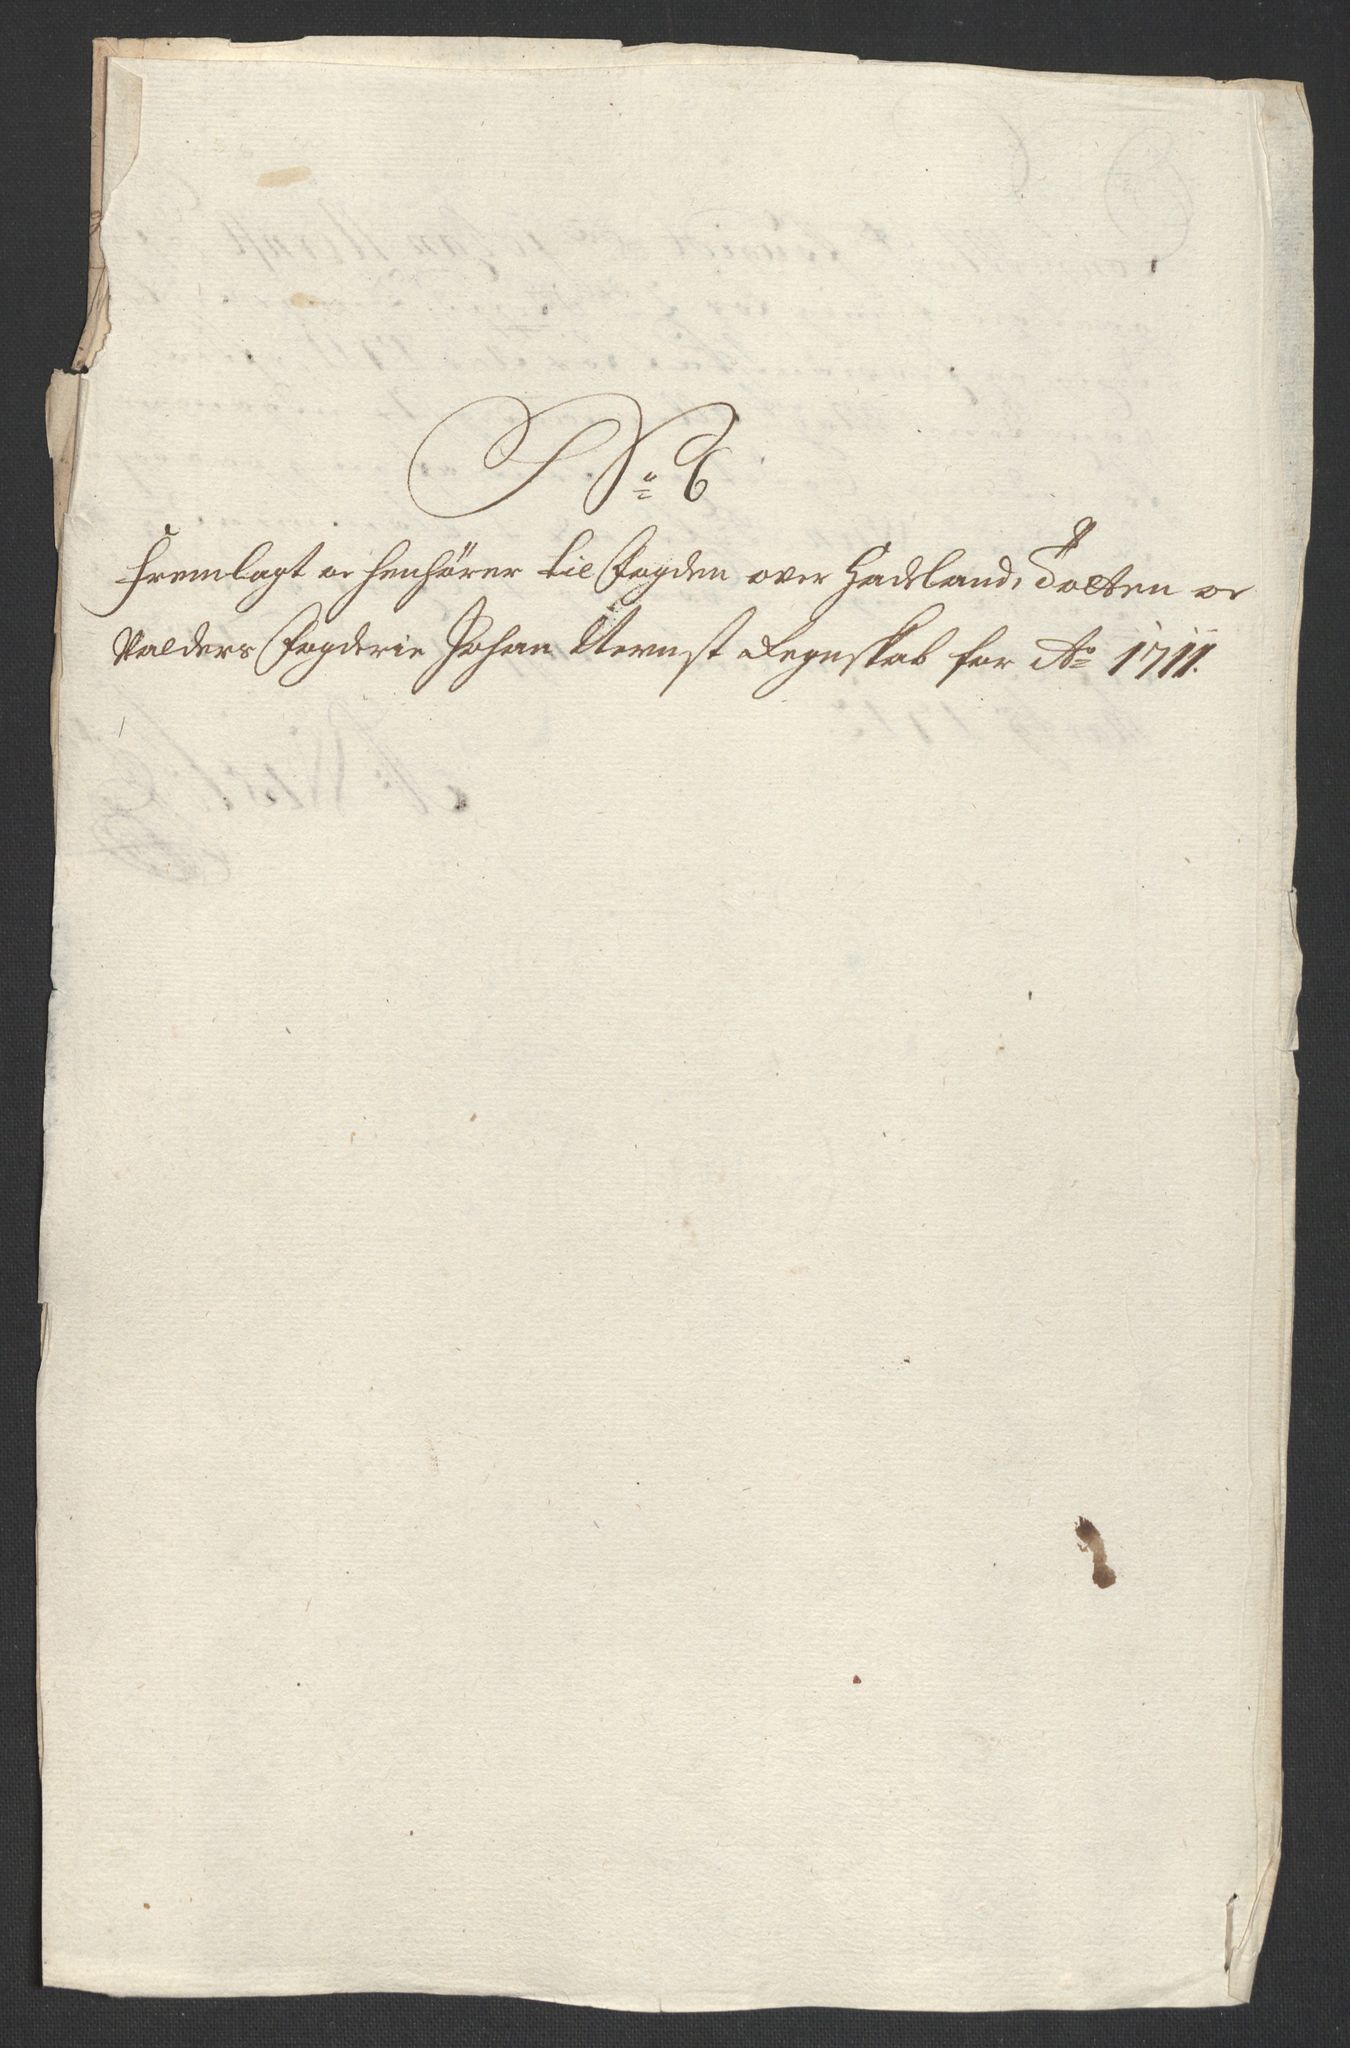 No 6
Fremlagt oc henhörer til Fogden over Hadeland, Totten oc
Valders Fogderie Johan Wernst Regnskab for Ao 1711.